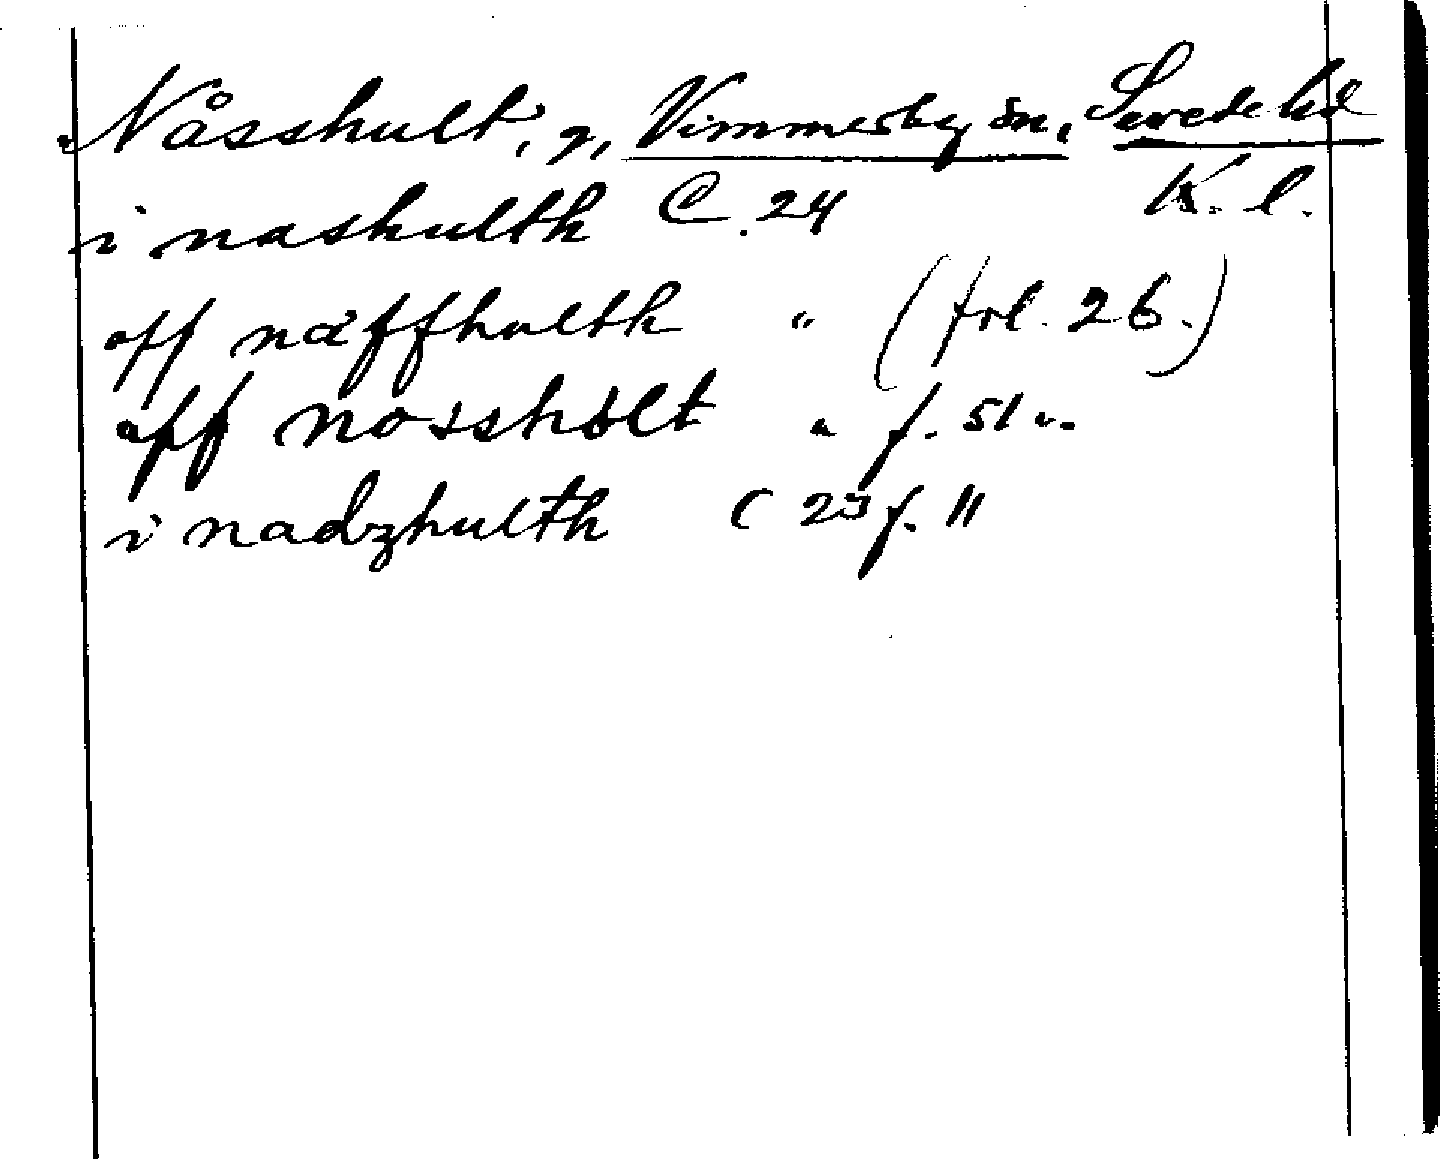 Nåsshult, g, Vimmerby sn, Sevede hd
K. l.
i nashulth C. 24
off näffhulth " (frl. 26.)
aff nosshult " f. 51 v.
i nadzhulth C 23 f. 11